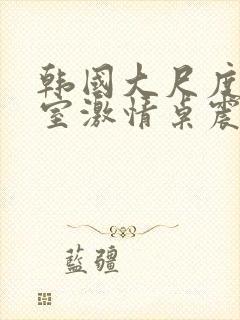 韩国大尺度
室激情桌震
蓝疆